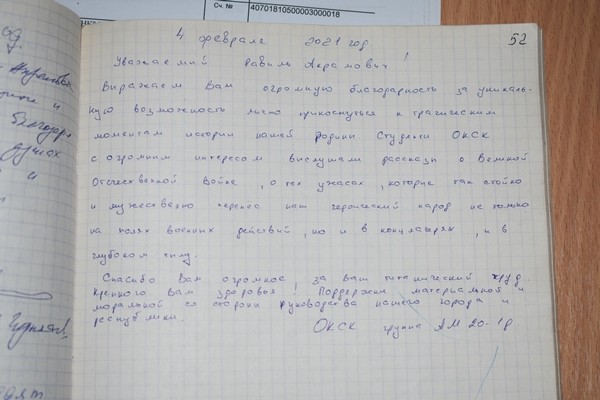 Сч. №
40701810500003000018
52
4 февраля 2021 год
Уважаемый Равиль Акрамович!
Выражаем Вам огромную благодарность за уникаль-
ную возможность лично прикоснуться к трагическим
моментам истории нашей Родины. Студенты ОКСК
с огромным интересом выслушали рассказы о Великой
Отечественной Войне, о тех ужасах, которые так стойко
и мужественно перенес наш героический народ не только
на полях военных действий, но и в концлагерях, и в
глубоком тылу.
Спасибо Вам огромное, за Ваш титанический труд
Крепкого Вам здоровья, Поддержки материальной и
моральной со стороны руководства нашего города и
республики.
ОКСК группа АМ 20-1р